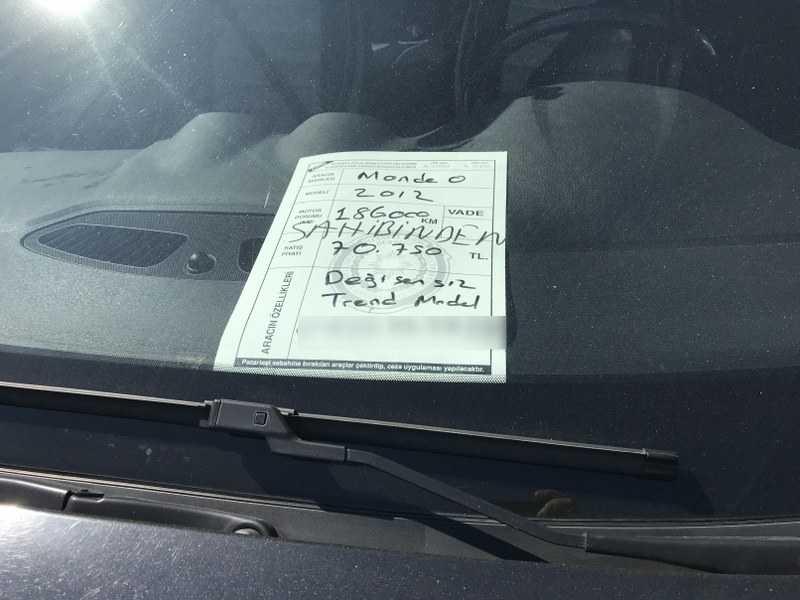 ARACIN MARKASI Mondeo
MODELİ 2012
MOTOR DURUMU 186000 KM VADE
SAHİBİNDEN
SATIŞ FİYATI 70.750 TL.
ARACIN ÖZELLİKLERİ
Değişensiz
Trend Model
Pazartesi sabahına bırakılan araçlar çektirilip, ceza uygulaması yapılacaktır.